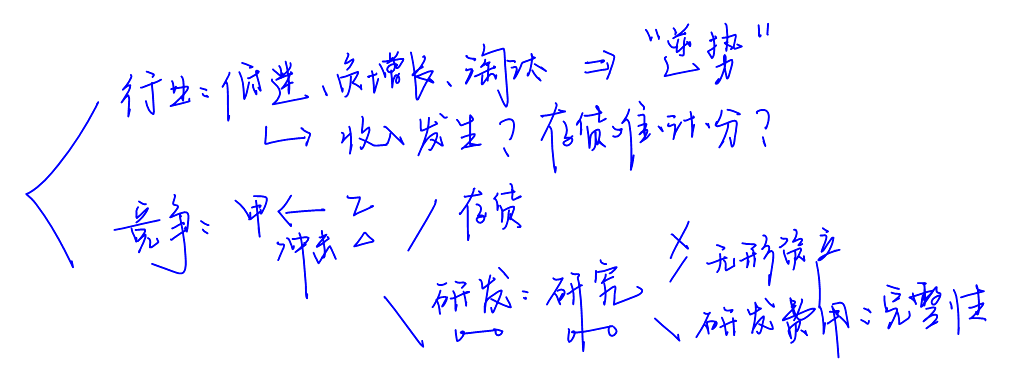 行业：低迷、负增长、淘汰 ⇒ “逆势”
↳ 收入发生？存货准计分？
竞争：甲 ← 乙 / 存货
冲击 △
研发：研究 × 无形资产
研发费用：完整性